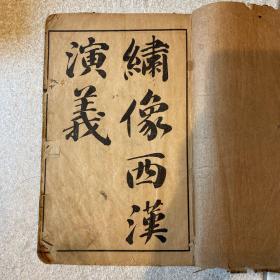 繡像西漢
演義